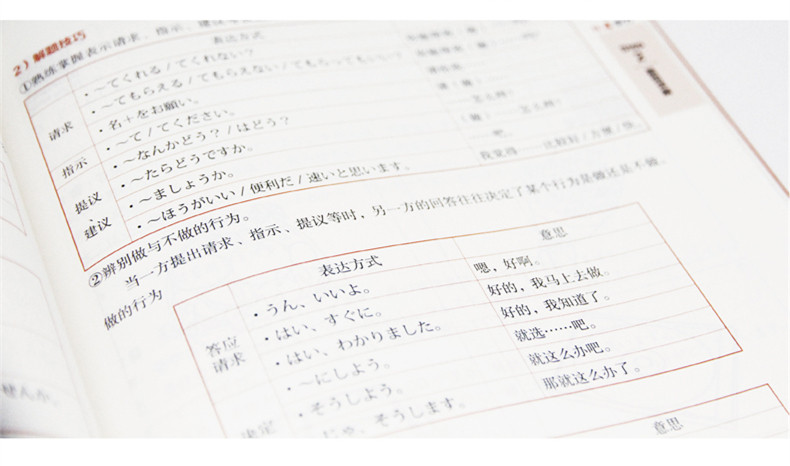 2）解题技巧
①熟练掌握表示请求、指示、建议
表达方式
请求
・～てくれる/てくれない？
・～てもらえる/てもらえない/てもらってもいい？
・名＋をお願い。
指示
・～て/てください。
提议・建议
・～なんかどう？/はどう？
・～たらどうですか。
・～ましょうか。
吧。
・～ほうがいい/便利だ/速いと思います。
我觉得 比较好/方便/快。
②辨别做与不做的行为。
当一方提出请求、指示、提议等时，另一方的回答往往决定了某个行为是做还是不做。
做的行为
表达方式 意思
答应请求
・うん、いいよ。 嗯，好啊。
・はい、すぐに。 好的，我马上去做。
・はい、わかりました。 好的，我知道了。
决定
・～にしよう。 就选……吧。
・そうしよう。 就这么办吧。
・じゃ、そうします。 那就这么办了。
意思
せんか。